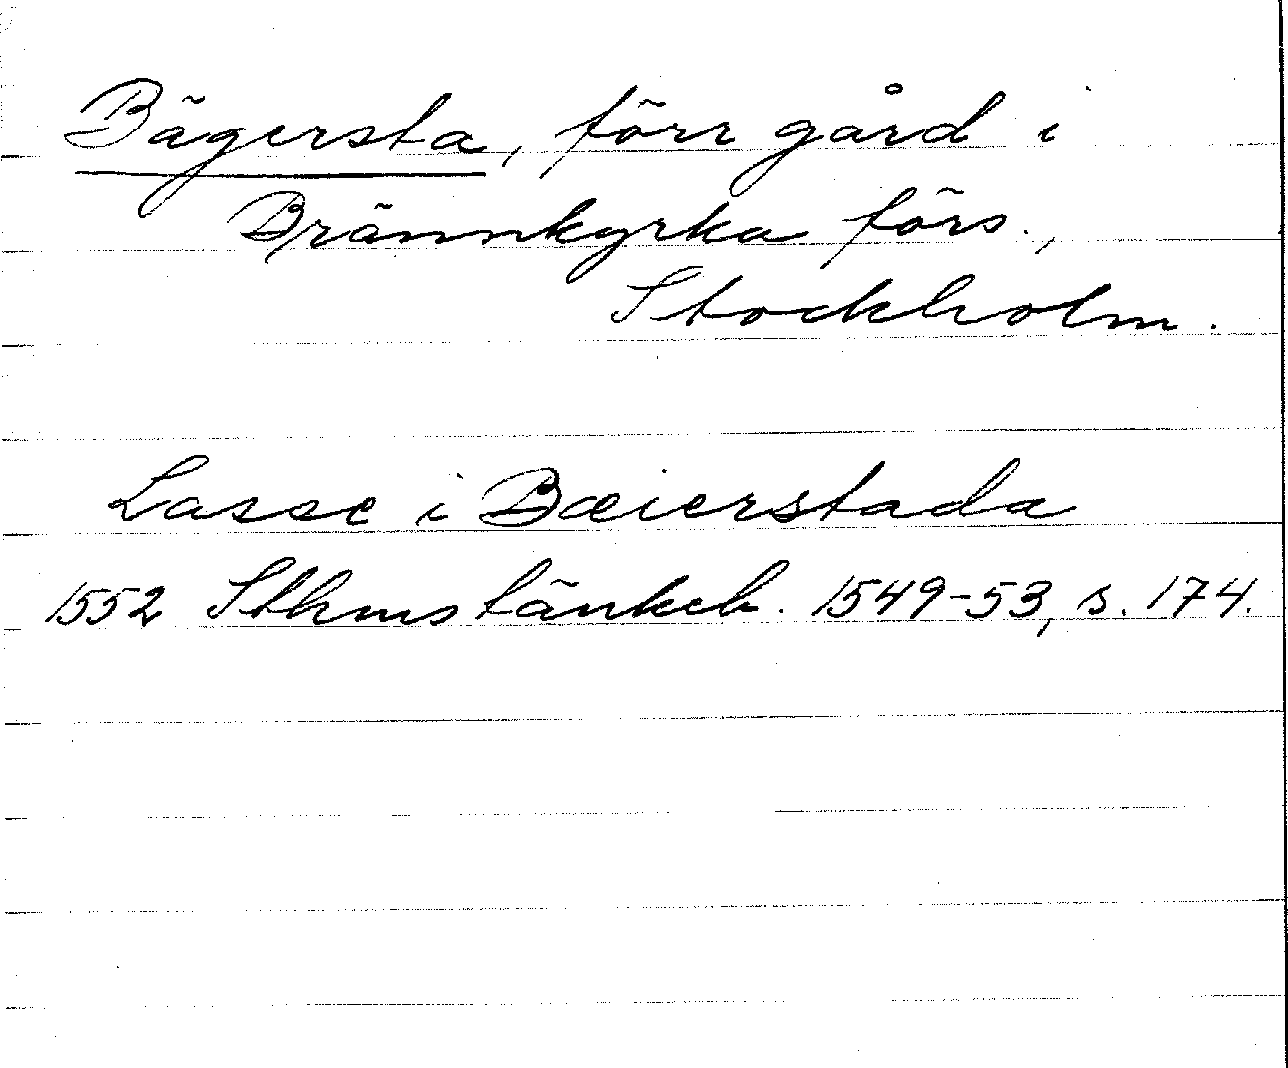 Bägersta, förr gård i
Brännkyrka förs.,
Stockholm.
Lasse i Bæierstada
1552 Sthms tänkeb. 1549-53, s. 174.